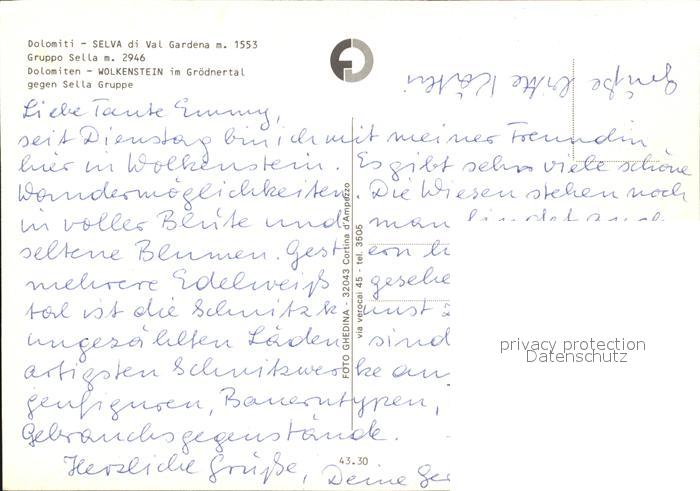 Dolomiti - SELVA di Val Gardena m. 1553
Gruppo Sella m. 2946
Dolomiten - WOLKENSTEIN im Grödnertal
gegen Sella Gruppe
Grüße
Liebe Tante Emmy,
seit Dienstag bin ich mit meiner Freundin
hier in Wolkenstein. Es gibt sehr viele schöne
Wandermöglichkeiten. Die Wiesen stehen noch
in voller Blüte und man findet auch
seltene Blumen. Gestern h
mehrere Edelweiß gesehe
tal ist die Schnitzkunst
ungezählten Läden sind
artigsten Schnitzwerke an
genfiguren, Bauerntypen,
Gebrauchsgegenstände.
Herzliche Grüße, Deine Ger
FOTO GHEDINA - 32043 Cortina d'Ampezzo
via verocai 45 - tel. 3505
43.30
privacy protection
Datenschutz